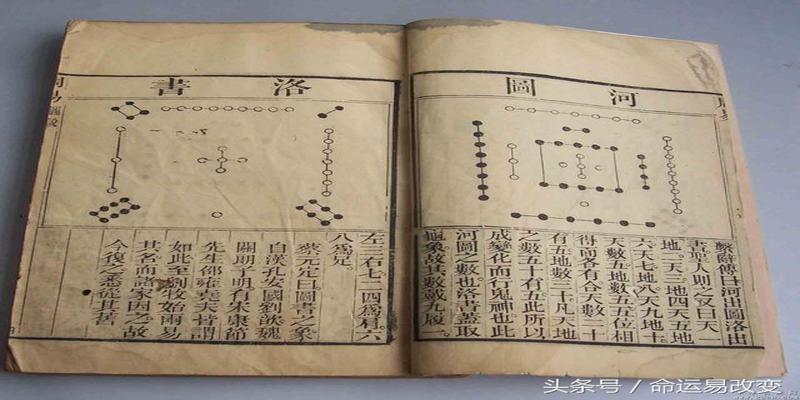 河圖
繫辭傳曰河出圖洛出
書聖人則之又曰天一
地二天三地四天五地
六天七地八天九地十
天數五地數五五位相
得而各有合天數二十
有五地數三十凡天地
之數五十有五此所以
成變化而行鬼神也此
河圖之數也洛書蓋取
龜象故其數戴九履一
洛書
左三右七二四爲肩六
八爲足
蔡元定曰圖書之象
自漢孔安國劉歆魏
關朗子明有宋康節
先生邵雍堯夫皆謂
如此至劉牧始兩易
其名而諸家因之故
今復之悉從其舊
头条号 / 命运易改变